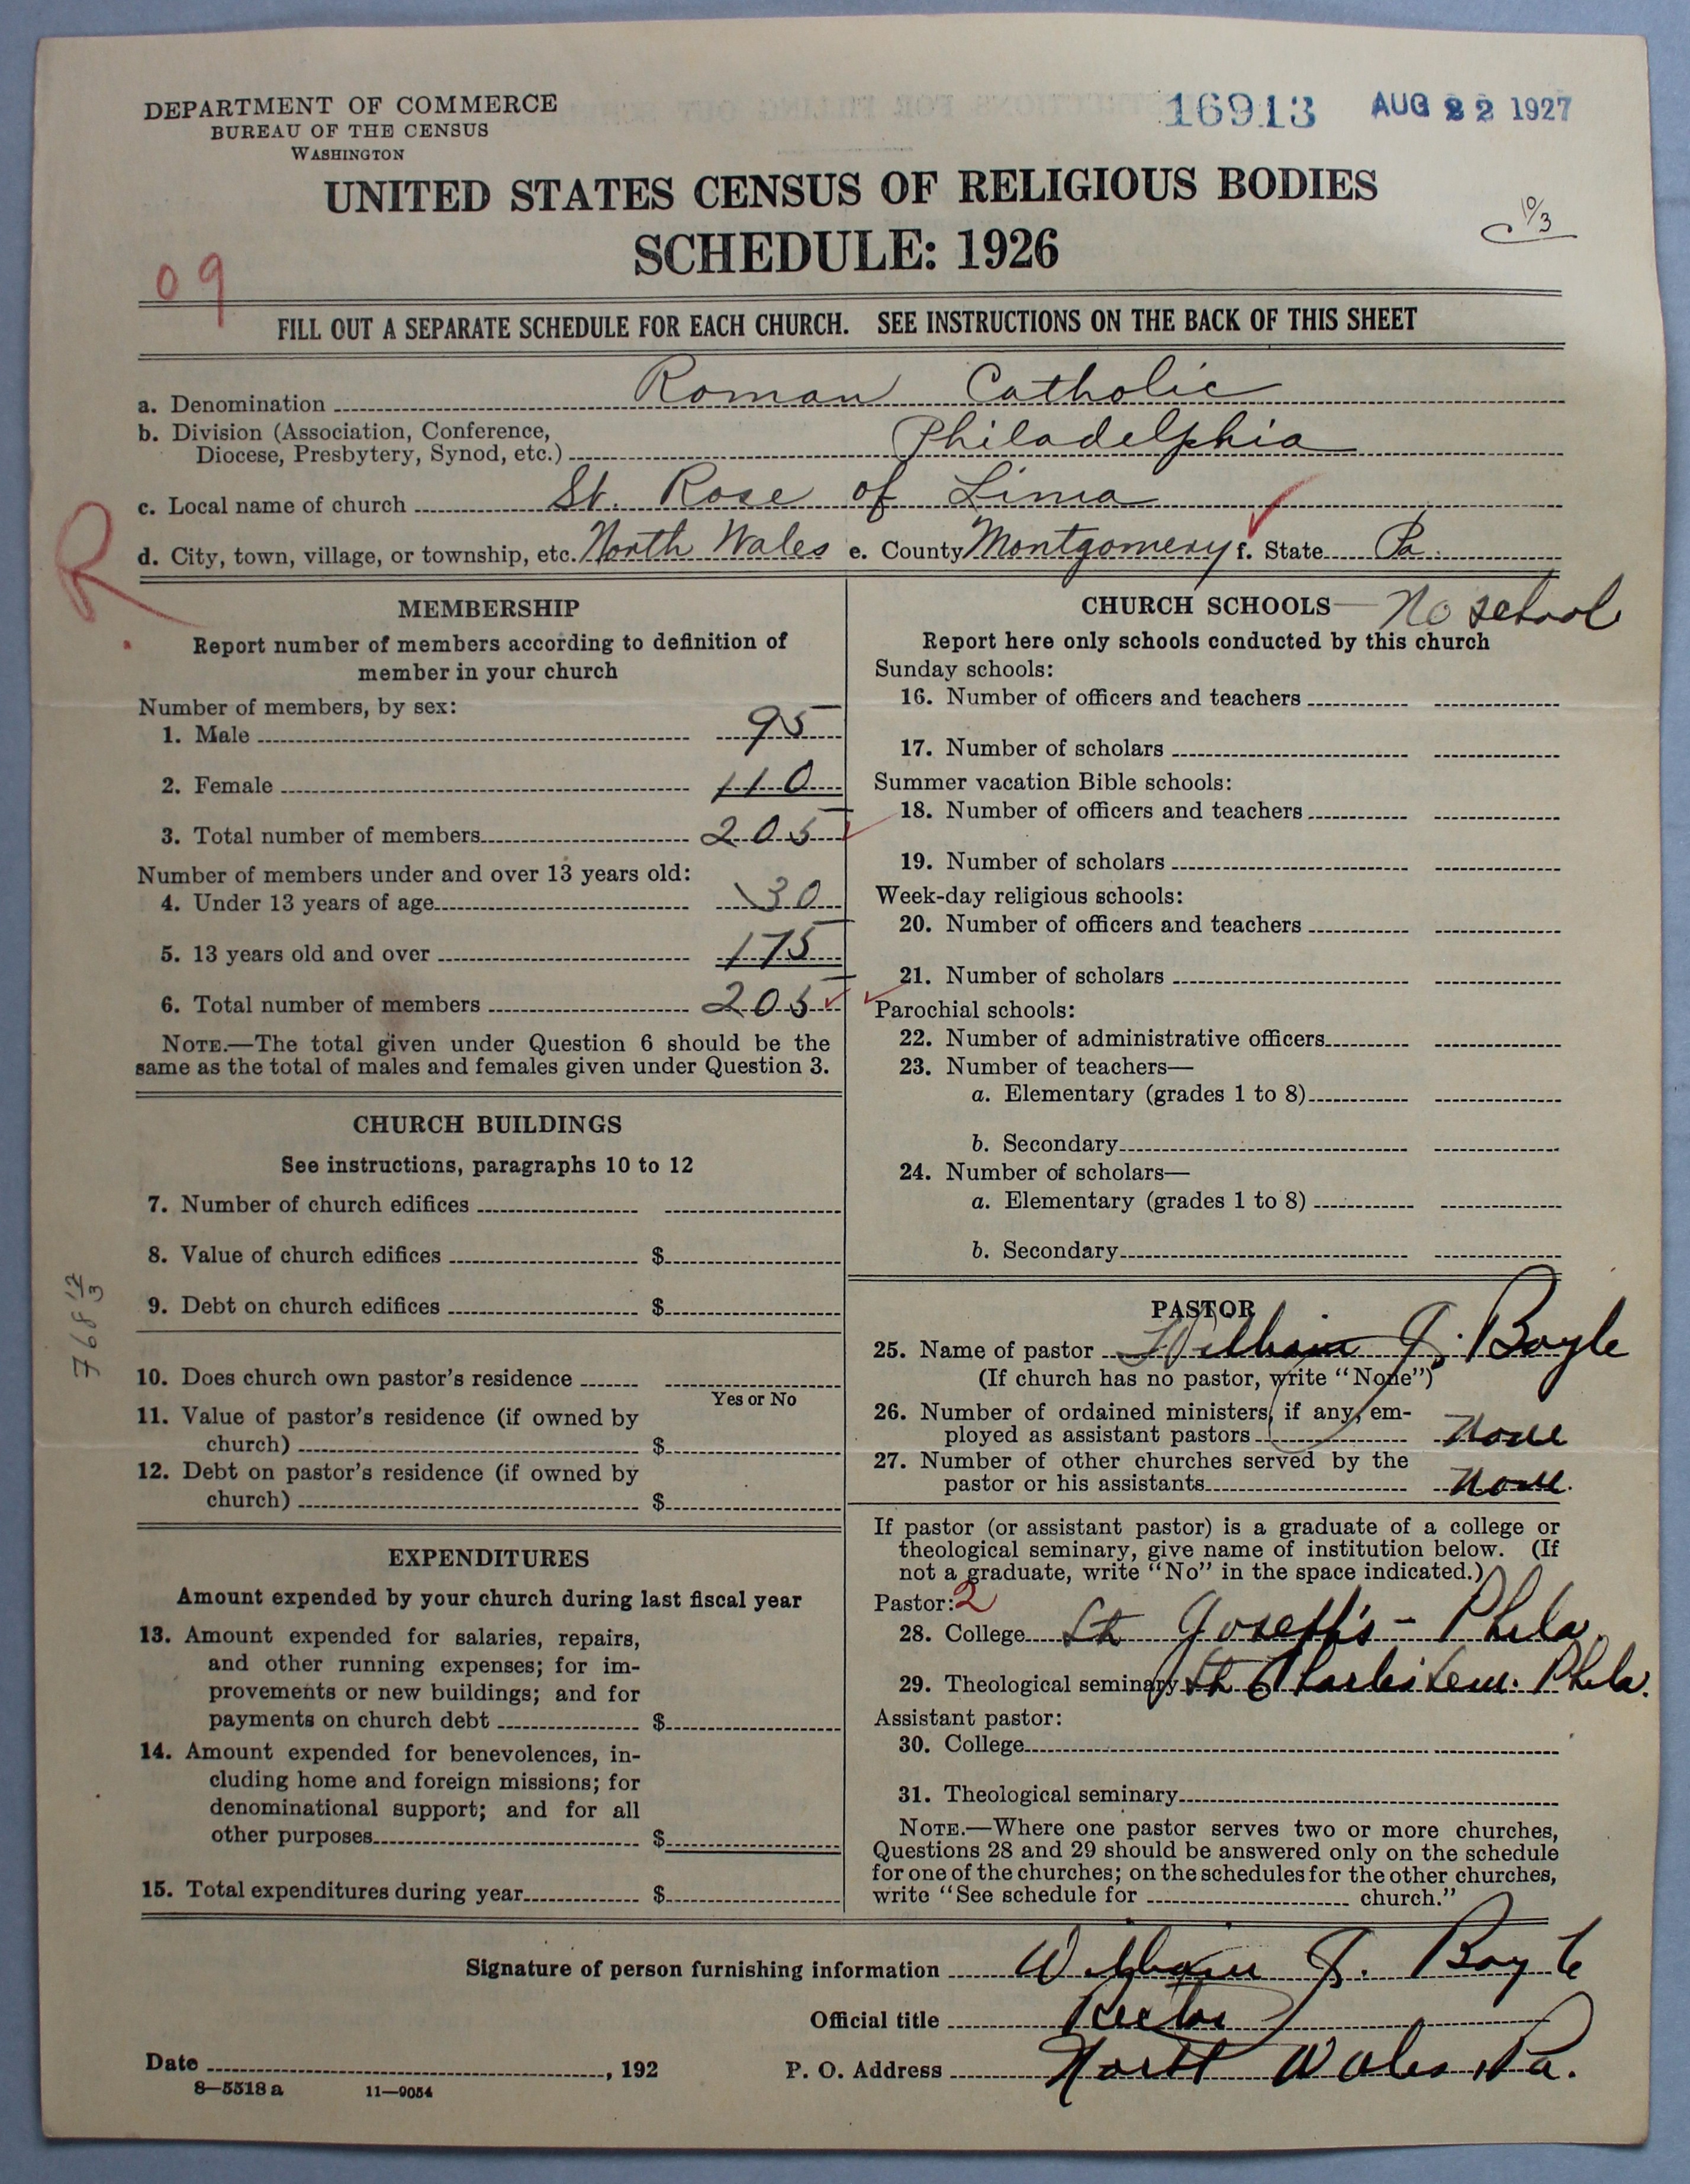 DEPARTMENT OF COMMERCE
BUREAU OF THE CENSUS
WASHINGTON
16913 AUG 22 1927
UNITED STATES CENSUS OF RELIGIOUS BODIES
SCHEDULE: 1926
10/3
09
FILL OUT A SEPARATE SCHEDULE FOR EACH CHURCH. SEE INSTRUCTIONS ON THE BACK OF THIS SHEET
a. Denomination Roman Catholic
b. Division (Association, Conference,
Diocese, Presbytery, Synod, etc.) Philadelphia
c. Local name of church St. Rose of Lima
R
d. City, town, village, or township, etc. North Wales e. County Montgomery f. State Pa.
MEMBERSHIP
Report number of members according to definition of
member in your church
Number of members, by sex:
1. Male 95
2. Female 110
3. Total number of members 205
Number of members under and over 13 years old:
4. Under 13 years of age 30
5. 13 years old and over 175
6. Total number of members 205
NOTE.—The total given under Question 6 should be the
same as the total of males and females given under Question 3.
CHURCH BUILDINGS
See instructions, paragraphs 10 to 12
7. Number of church edifices
8. Value of church edifices $
9. Debt on church edifices $
10. Does church own pastor's residence
Yes or No
11. Value of pastor's residence (if owned by
church) $
12. Debt on pastor's residence (if owned by
church) $
EXPENDITURES
Amount expended by your church during last fiscal year
13. Amount expended for salaries, repairs,
and other running expenses; for im-
provements or new buildings; and for
payments on church debt $
14. Amount expended for benevolences, in-
cluding home and foreign missions; for
denominational support; and for all
other purposes $
15. Total expenditures during year $
CHURCH SCHOOLS — No school
Report here only schools conducted by this church
Sunday schools:
16. Number of officers and teachers
17. Number of scholars
Summer vacation Bible schools:
18. Number of officers and teachers
19. Number of scholars
Week-day religious schools:
20. Number of officers and teachers
21. Number of scholars
Parochial schools:
22. Number of administrative officers
23. Number of teachers—
a. Elementary (grades 1 to 8)
b. Secondary
24. Number of scholars—
a. Elementary (grades 1 to 8)
b. Secondary
PASTOR
25. Name of pastor William J. Boyle
(If church has no pastor, write "None")
26. Number of ordained ministers, if any, em-
ployed as assistant pastors None
27. Number of other churches served by the
pastor or his assistants None.
If pastor (or assistant pastor) is a graduate of a college or
theological seminary, give name of institution below. (If
not a graduate, write "No" in the space indicated.)
Pastor: 2
28. College St Joseph's - Phila.
29. Theological seminary St Charles Sem. Phila.
Assistant pastor:
30. College
31. Theological seminary
NOTE.—Where one pastor serves two or more churches,
Questions 28 and 29 should be answered only on the schedule
for one of the churches; on the schedules for the other churches,
write "See schedule for church."
Signature of person furnishing information William J. Boyle
Official title Rector
Date , 192 P. O. Address North Wales, Pa.
8—5518 a 11—9054